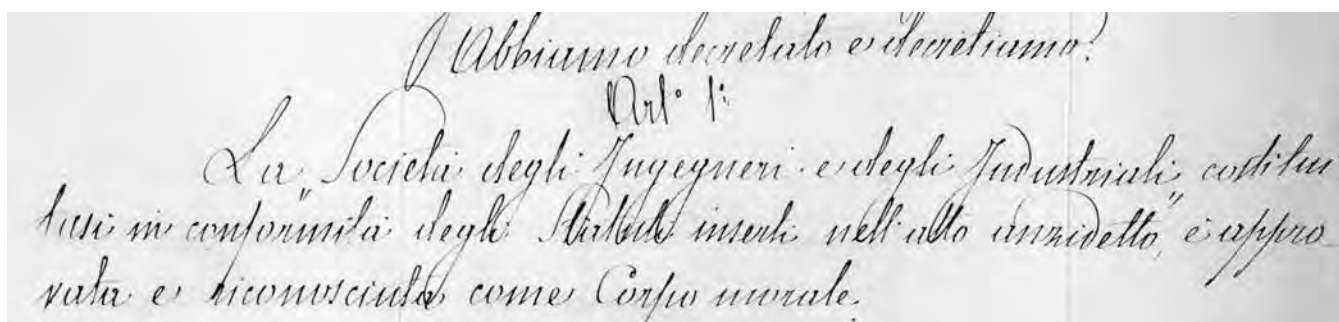 Abbiamo decretato e decretiamo:
Art.° 1.°
La Società degli Ingegneri e degli Industriali, costitui
tasi in conformità degli Statuti inserti nell'atto anzidetto, è appro-
vata e riconosciuta come Corpo morale.